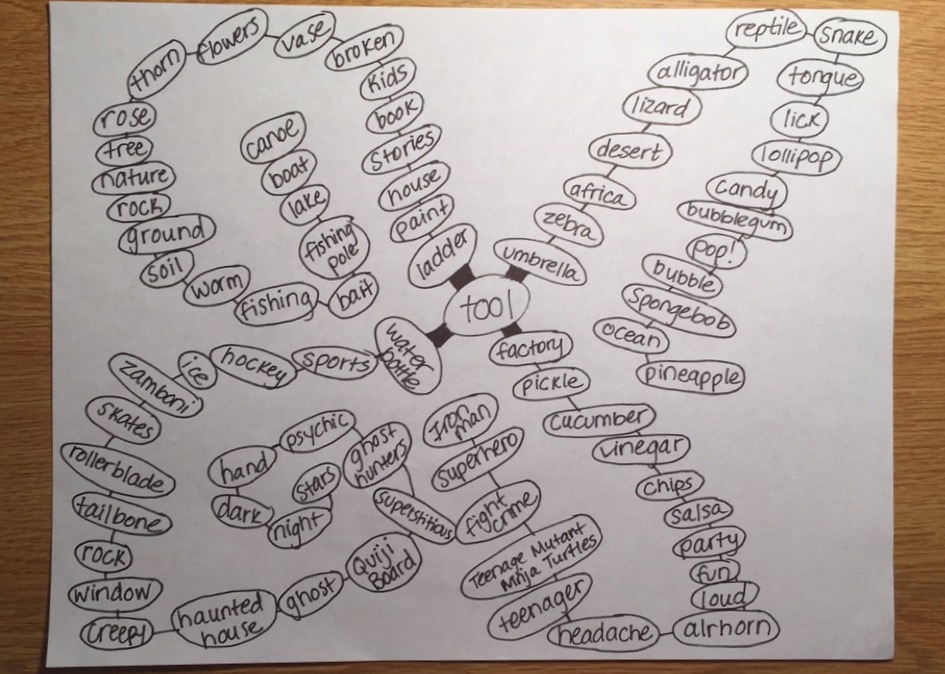 tool
ladder
paint
house
Stories
book
Kids
broken
vase
flowers
thorn
rose
tree
nature
rock
ground
soil
worm
fishing
bait
fishing
pole
lake
boat
canoe
umbrella
zebra
africa
desert
lizard
alligator
reptile
snake
tongue
lick
lollipop
candy
bubblegum
pop!
bubble
Spongebob
ocean
pineapple
factory
pickle
cucumber
vinegar
chips
salsa
party
fun
loud
airhorn
headache
teenager
Teenage Mutant
Ninja Turtles
fight
crime
superhero
Iron
man
water
bottle
sports
hockey
ice
zamboni
skates
rollerblade
tailbone
rock
window
creepy
haunted
house
ghost
Quiji
Board
superstitious
ghost
hunters
psychic
hand
dark
night
stars